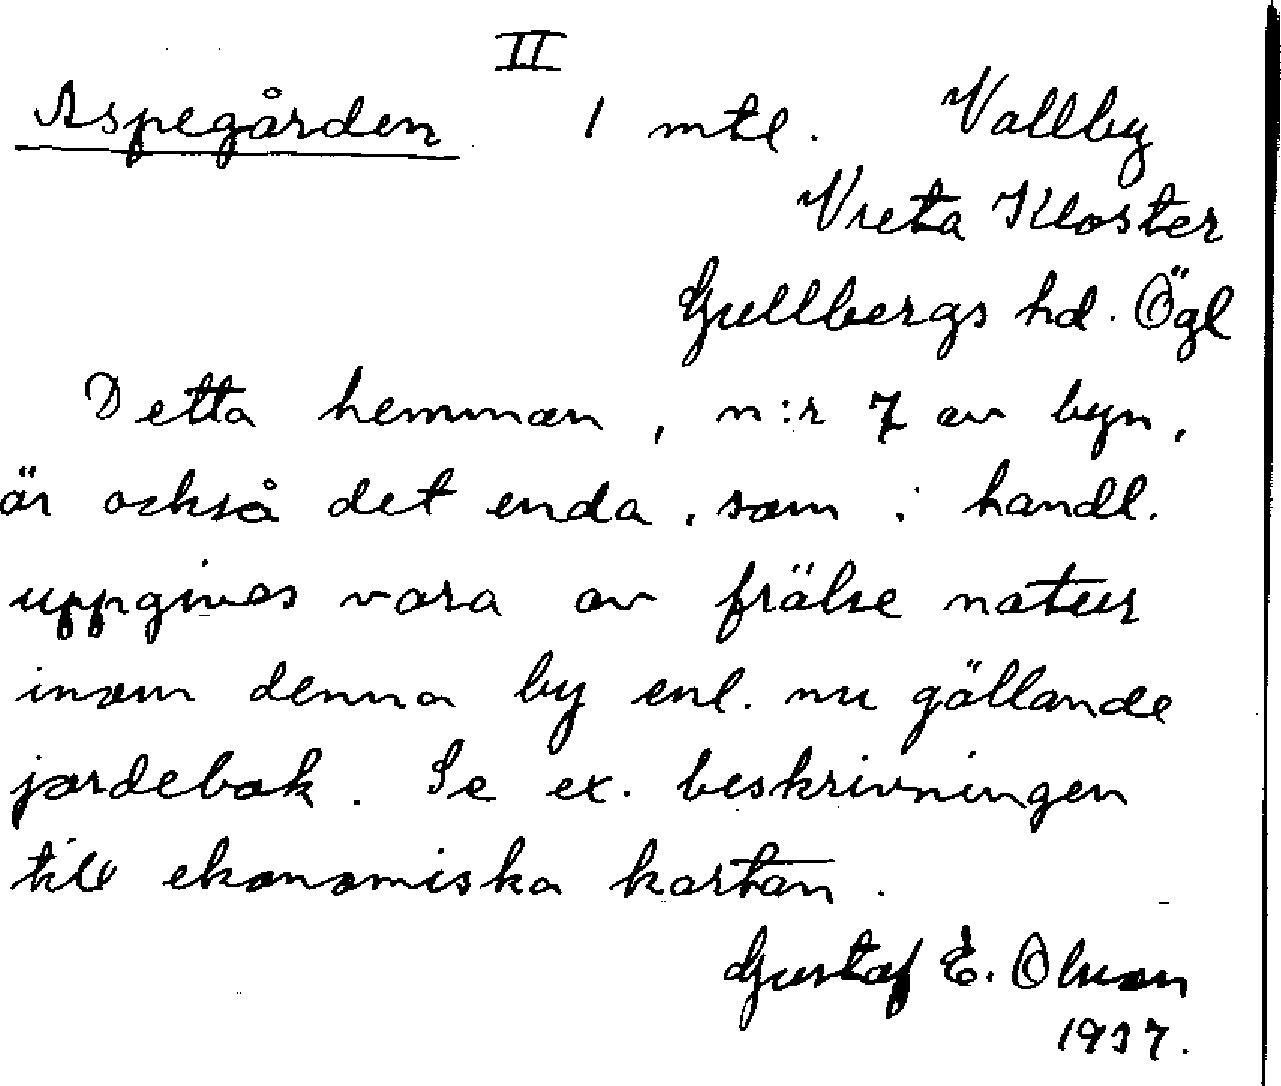 II
Aspegården 1 mtl. Vallby
Vreta Kloster
Gullbergs hd. Ögl
Detta hemman, n:r 7 av byn,
är också det enda, som i handl.
uppgives vara av frälse natur
inom denna by enl. nu gällande
jordebok. Se ex. beskrivningen
till ekonomiska kartan.
Gustaf E. Olsson
1937.